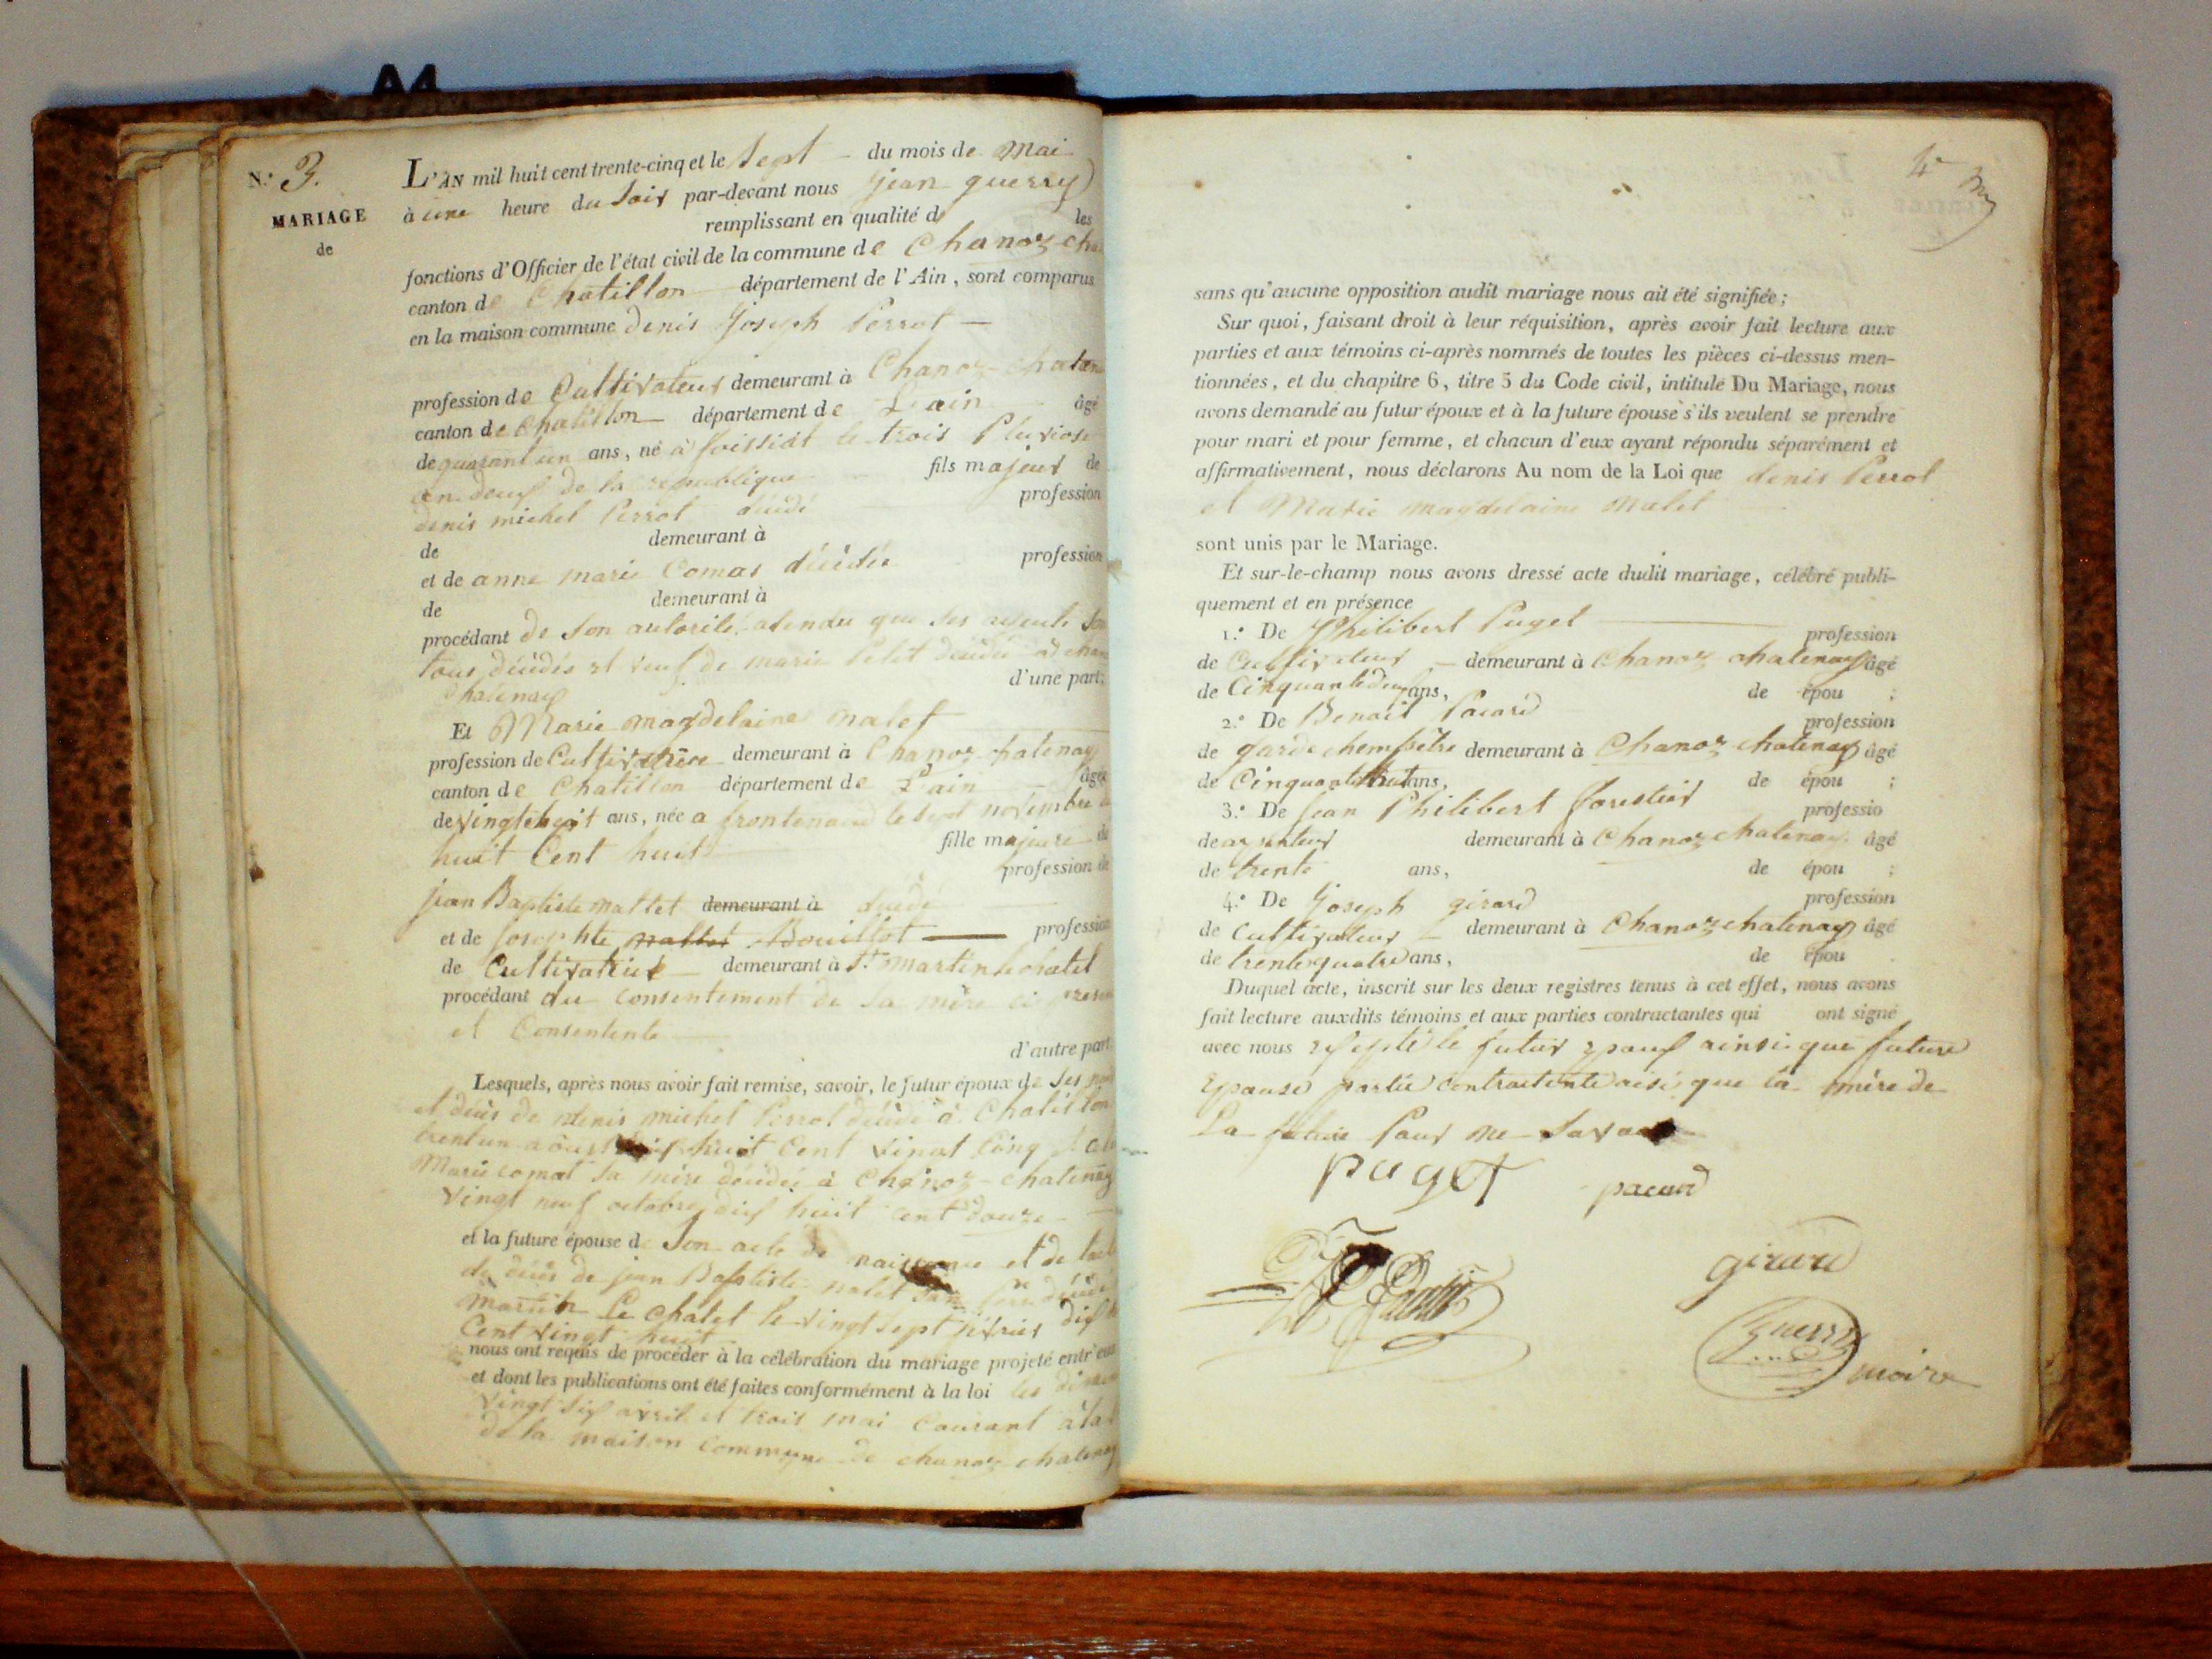 A4
N.° 3.
MARIAGE
de
L'AN mil huit cent trente-cinq et le sept du mois de Mai
à une heure du soir par-devant nous jean guerry
remplissant en qualité d les
fonctions d'Officier de l'état civil de la commune de Chanoz-cha
canton de Chatillon département de l'Ain, sont comparus
en la maison commune denis Joseph Perrot
profession de Cultivateur demeurant à Chanoz-chaten
canton de Chatillon département de L'ain âgé
de quarant un ans, né à foissiat le trois Pluviose
an deux de la republique fils majeur de
denis michel Perrot décédé profession
de demeurant à
et de anne marie Comas décédée profession
de demeurant à
procédant de son autorité atendu que ses ayeuls son
tous décédés et veuf de marie Petit décédée à chano
Chatenay d'une part;
Et Marie magdelaine malet
profession de Cultivatrice demeurant à Chanoz chatenay
canton de Chatillon département de L'ain âgée
de vingtehuit ans, née a frontenaud le sept novembre
huit Cent huit fille majeure de
profession de
jean Baptiste mallet demeurant à décédé
et de josephte mallet Bouillot profession
de Cultivatrice demeurant à St martin le chatel
procédant du consentement de sa mère ci presen
et Consentente
d'autre part
Lesquels, après nous avoir fait remise, savoir, le futur époux de ses
et décès de denis michel Perrot décédé à Chatillon
trentun aoust huit Cent vingt Cinq
Marie comat sa mère décédée à Chanoz-chatenay
vingt neuf octobre dix huit cent douze
et la future épouse d Son acte de naissance et de lact
de décès de jean Baptiste malet son père décédé
martin Le chatel le vingt sept février dix h
Cent vingt huit
nous ont requis de procéder à la célébration du mariage projeté entr'eux
et dont les publications ont été faites conformément à la loi les diman
vingt six avril et trois mai Courant à la
de la maison commune de chanoz chatenay
4e
sans qu'aucune opposition audit mariage nous ait été signifiée;
Sur quoi, faisant droit à leur réquisition, après avoir fait lecture aux
parties et aux témoins ci-après nommés de toutes les pièces ci-dessus men-
tionnées, et du chapitre 6, titre 5 du Code civil, intitulé Du Mariage, nous
avons demandé au futur époux et à la future épouse s'ils veulent se prendre
pour mari et pour femme, et chacun d'eux ayant répondu séparément et
affirmativement, nous déclarons Au nom de la Loi que denis Perrot
et Marie magdelaine Malet
sont unis par le Mariage.
Et sur-le-champ nous avons dressé acte dudit mariage, célébré publi-
quement et en présence
1.° De Philibert Puget profession
de Cultivateur demeurant à Chanoz chatenay âgé
de Cinquantedeux ans, de épou ;
2.° De Benoit Pacard profession
de garde chempêtre demeurant à Chanoz chatenay âgé
de Cinquantehuit ans, de épou ;
3.° De Jean Philibert forestier professio
de arpenteur demeurant à Chanoz chatenay âgé
de trente ans, de épou ;
4.° De Joseph girard profession
de Cultivateur demeurant à Chanoz chatenay âgé
de trente quatre ans, de épou .
Duquel acte, inscrit sur les deux registres tenus à cet effet, nous avons
fait lecture auxdits témoins et aux parties contractantes qui ont signé
avec nous excepté le futur epoux ainsi que future
Epouse partie contractente aisi que la mère de
La future Pour ne savoir
puget pacard
girard
Guerry
maire